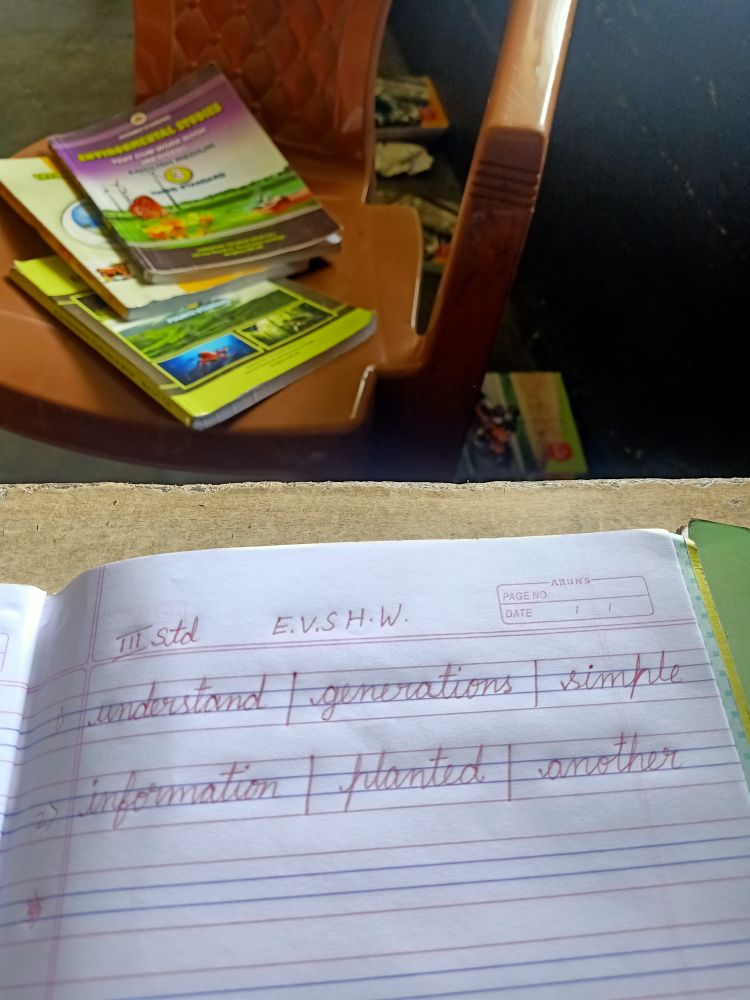 ENVIRONMENTAL STUDIES
TEXT CUM WORK BOOK
3
ARUN'S
PAGE NO.
DATE / /
III std E.V.S H.W.
1) understand | generations | simple
2) information | planted | another